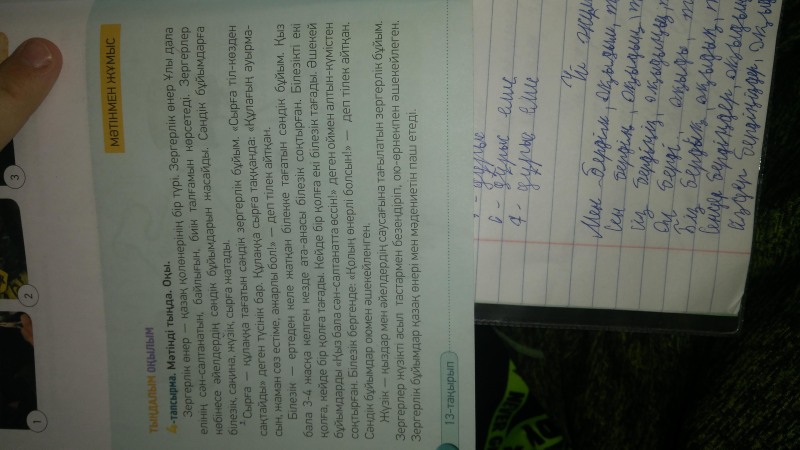 1
2
3
МӘТІНМЕН ЖҰМЫС
ТЫҢДАЛЫМ ОҚЫЛЫМ
4-тапсырма. Мәтінді тыңда. Оқы.
Зергерлік өнер — қазақ қолөнерінің бір түрі. Зергерлік өнер Ұлы дала
елінің сән-салтанатын, байлығын, биік талғамын көрсетеді. Зергерлер
көбінесе әйелдердің сәндік бұйымдарын жасайды. Сәндік бұйымдарға
білезік, сақина, жүзік, сырға жатады.
Сырға — құлаққа тағатын сәндік зергерлік бұйым. «Сырға тіл-көзден
сақтайды» деген түсінік бар. Құлаққа сырға таққанда: «Құлағың ауырма-
сын, жаман сөз естіме, ажарлы бол!» — деп тілек айтқан.
Білезік — ертеден келе жатқан білекке тағатын сәндік бұйым. Қыз
бала 3-4 жасқа келген кезде ата-анасы білезік соқтырған. Білезікті екі
қолға, кейде бір қолға тағады. Кейде бір қолға екі білезік тағады. Әшекей
бұйымдарды «Қыз бала сән-салтанатта өссін!» деген оймен алтын-күмістен
соқтырған. Білезік бергенде: «Қолың өнерлі болсын!» — деп тілек айтқан.
Сәндік бұйымдар оюмен әшекейленген.
Жүзік — қыздар мен әйелдердің саусағына тағылатын зергерлік бұйым.
Зергерлер жүзікті асыл тастармен безендіріп, ою-өрнекпен әшекейлеген.
Зергерлік бұйымдар қазақ өнері мен мәдениетін паш етеді.
13-тақырып
дұрыс
6 - дұрыс емес
7 - дұрыс емес
Мен бердім, оқыдым,
Сен бердің, оқыдың,
Сіз бердіңіз, оқыдыңыз,
Ол берді, оқыды,
Біз бердік, оқыдық,